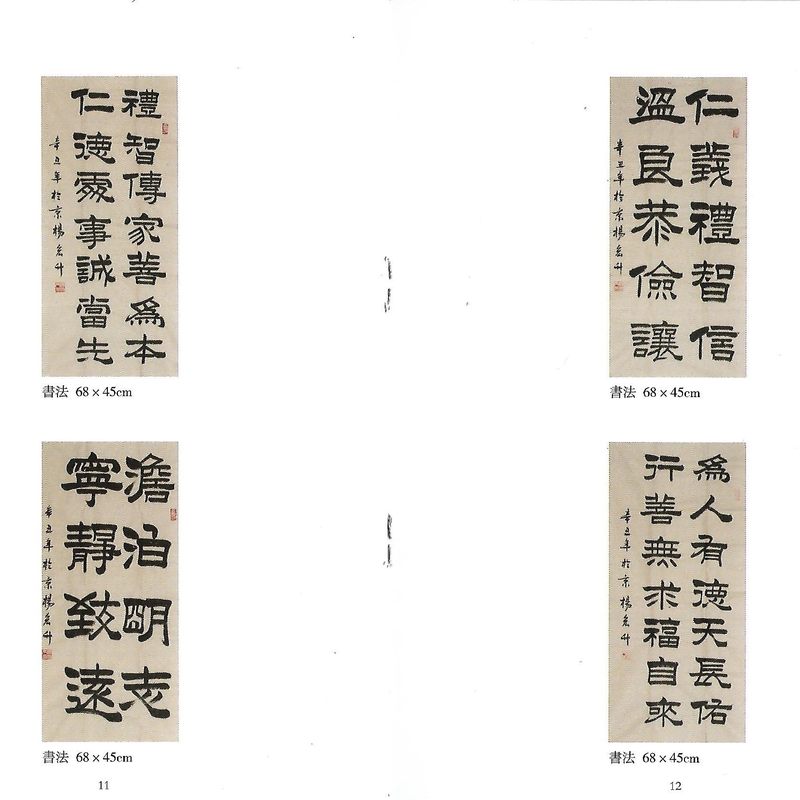 禮智傳家善為本
仁德處事誠當先
辛丑年於京楊宏升
書法 68 × 45cm
澹泊明志
寧靜致遠
辛丑年於京楊宏升
書法 68 × 45cm
11
仁義禮智信
溫良恭儉讓
辛丑年於京楊宏升
書法 68 × 45cm
為人有德天長佑
行善無求福自來
辛丑年於京楊宏升
書法 68 × 45cm
12